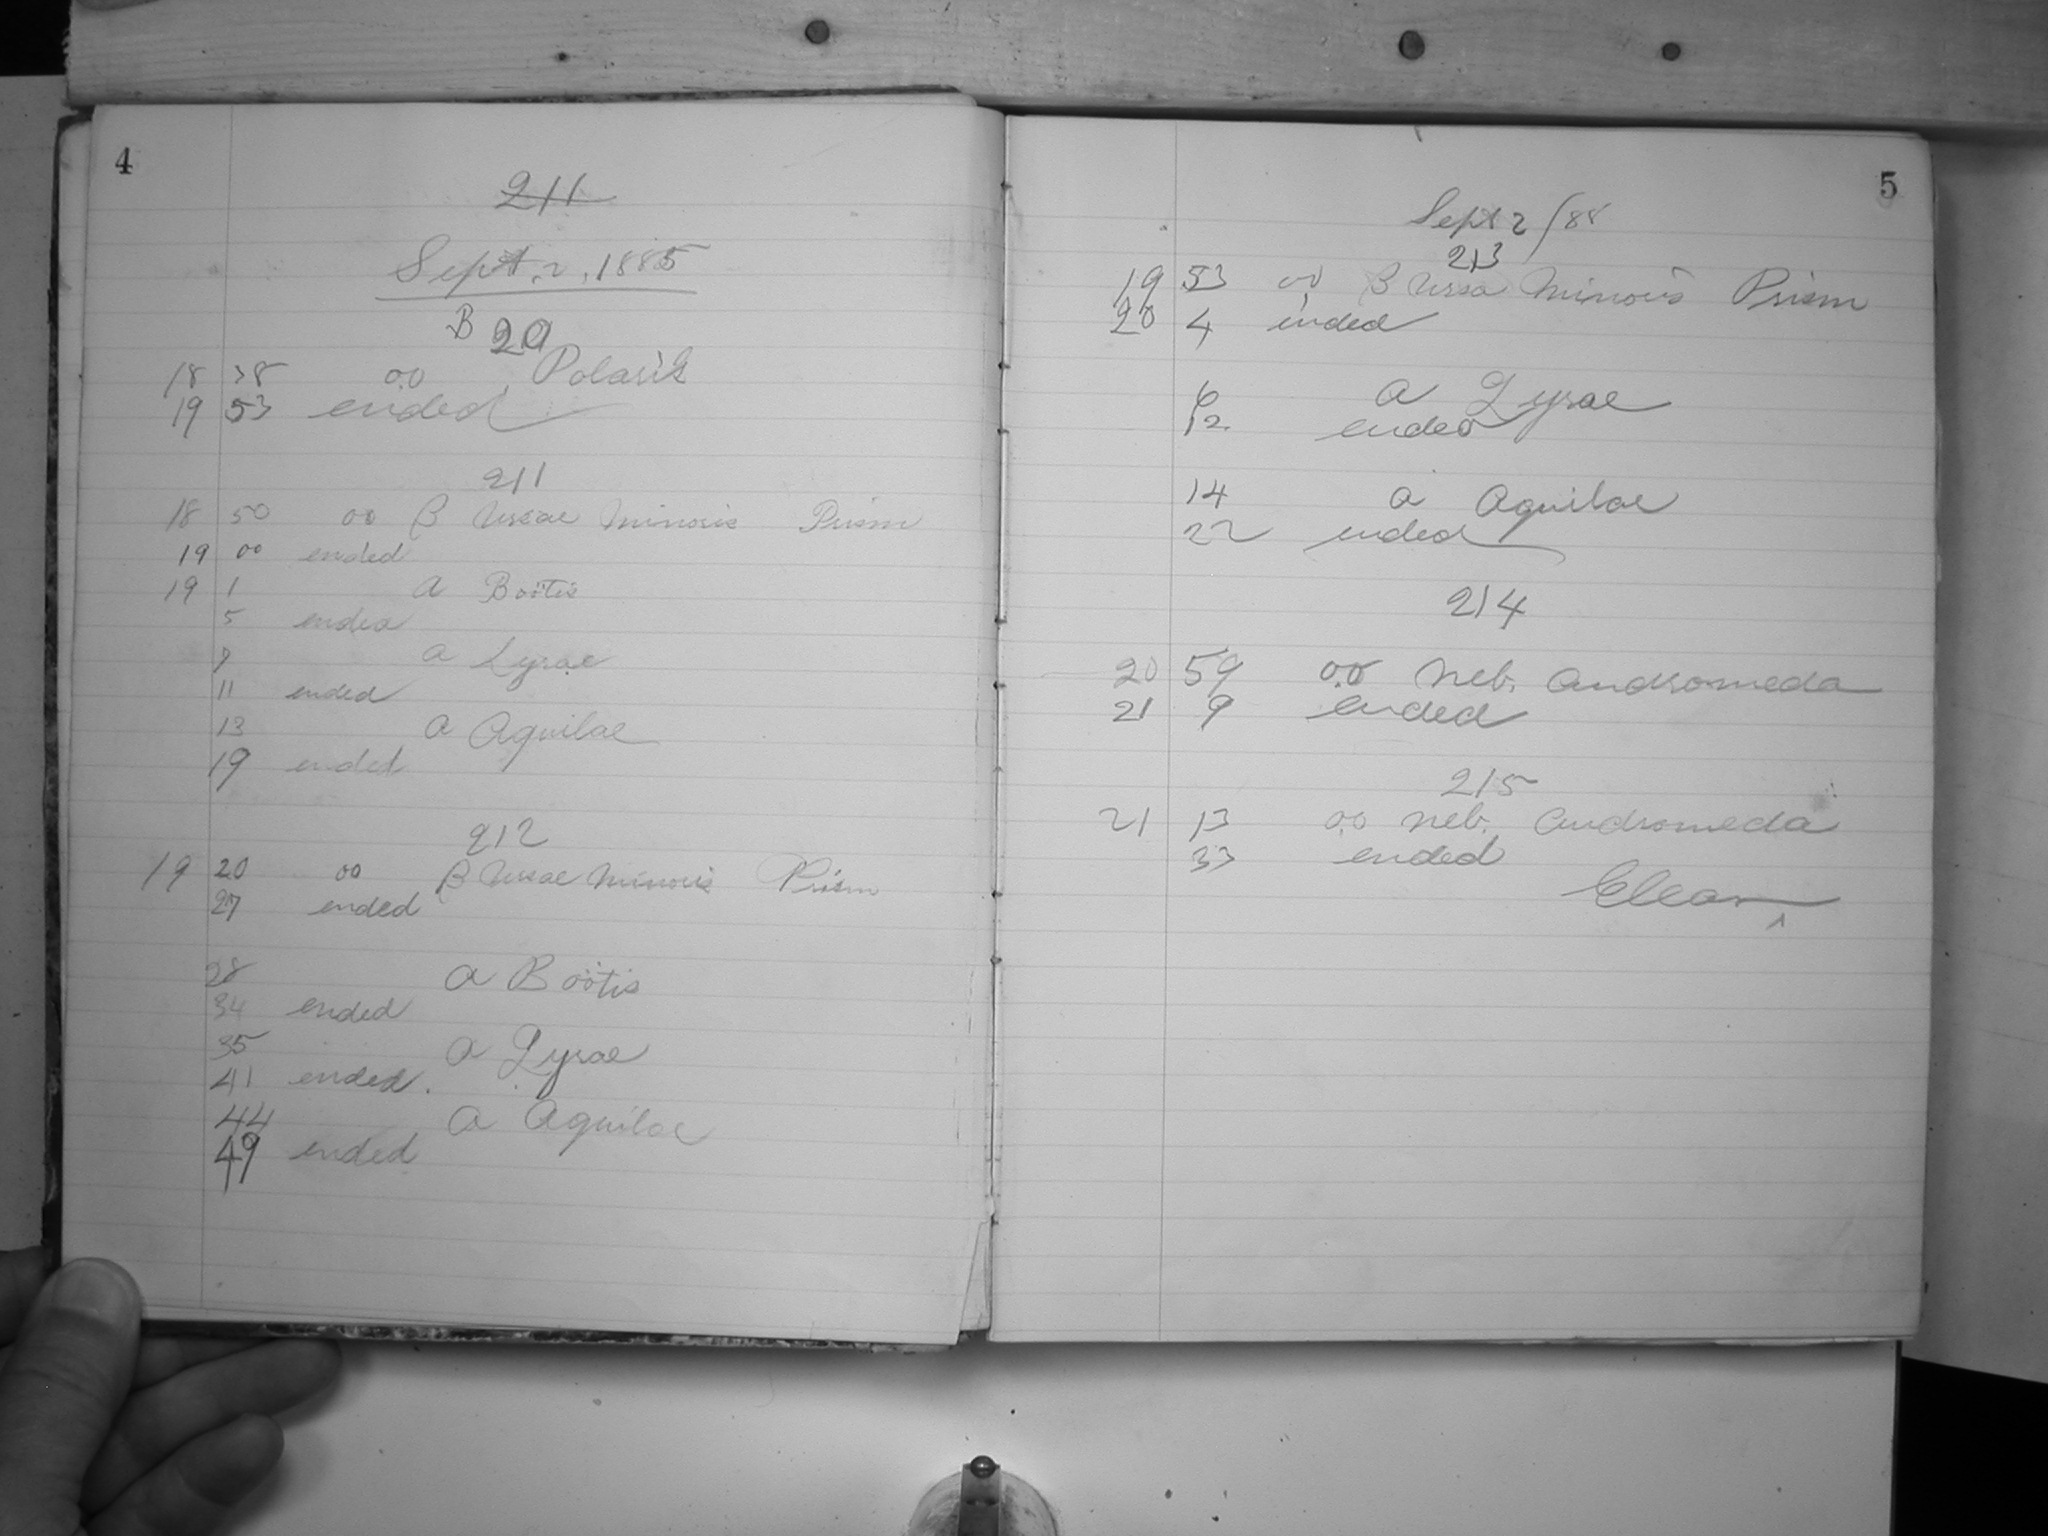 4
211
Sept. 2, 1885
B 20
18 38 00 Polaris
19 53 ended
211
18 50 00 β Ursae Minoris Prism
19 00 ended
19 1 a Boötis
5 ended
a Lyrae
11 ended
13 a Aquilae
19 ended
212
19 20 00 β Ursae Minoris Prism
27 ended
28 a Boötis
34 ended
35 a Lyrae
41 ended.
44 a Aquilae
49 ended
5
Sept 2/85
213
19 53 00 β Ursa Minoris Prism
20 4 ended
6 a Lyrae
12 ended
14 a Aquilae
22 ended
214
20 59 00 Neb. Andromeda
21 9 ended
215
21 13 00 Neb. Andromeda
33 ended
Clear